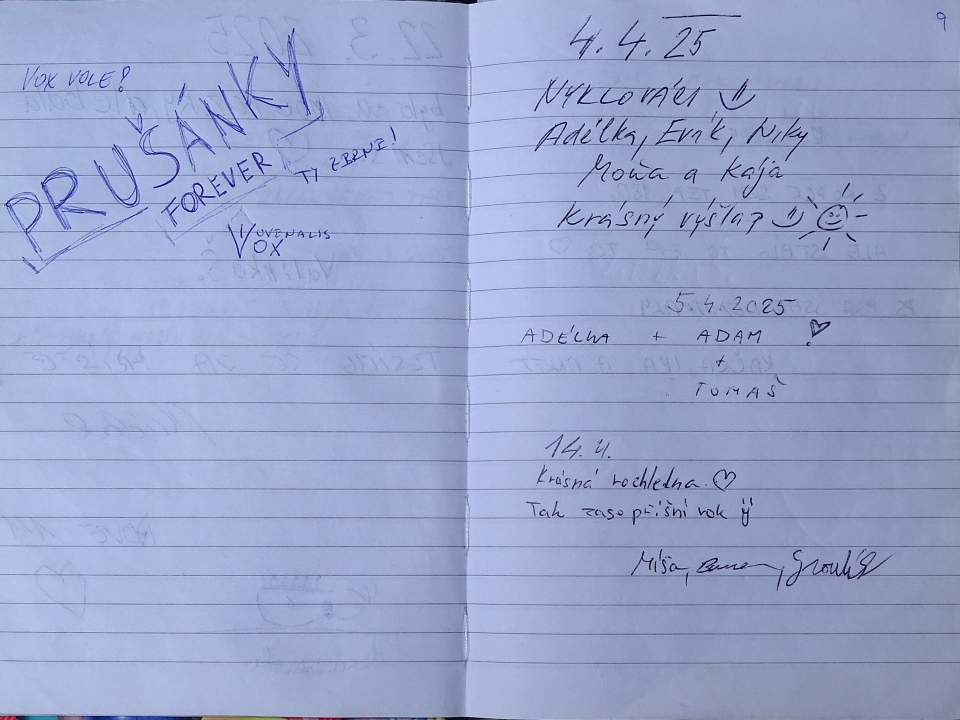 VOX VOLE!
PRUŠÁNKY
FOREVER
TY ZBRNE!
JUVENALIS
VOX
9
4.4.25
NYKLOVÁCI
Adélka, Erik, Niky
Moňa a Kája
Krásný výšlap
5.4.2025
ADÉLKA + ADAM
+
TOMAŠ
14.4.
Krásná rozhledna.
Tak zase příští rok
Míša,